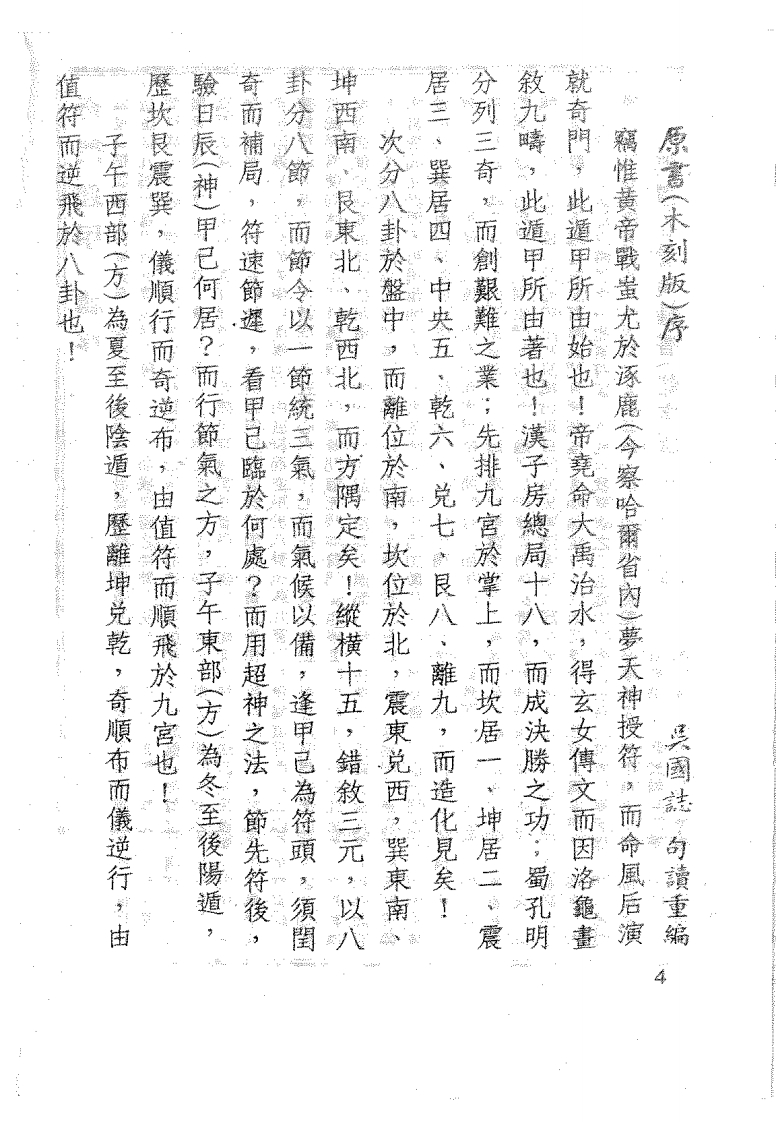 原書(木刻版)序　　　吳國誌　句讀重編
竊惟黃帝戰蚩尤於涿鹿(今察哈爾省內)夢天神授符，而命風后演
就奇門，此遁甲所由始也！帝堯命大禹治水，得玄女傳文而因洛龜畫
敘九疇，此遁甲所由著也！漢子房總局十八，而成決勝之功；蜀孔明
分列三奇，而創艱難之業；先排九宮於掌上，而坎居一、坤居二、震
居三、巽居四、中央五、乾六、兌七、艮八、離九，而造化見矣！
次分八卦於盤中，而離位於南，坎位於北，震東兌西，巽東南、
坤西南、艮東北、乾西北，而方隅定矣！縱橫十五，錯敘三元，以八
卦分八節，而節令以一節統三氣，而氣候以備，逢甲己為符頭，須閏
奇而補局，符速節遲，看甲己臨於何處？而用超神之法，節先符後，
驗日辰(神)甲己何居？而行節氣之方，子午東部(方)為冬至後陽遁，
歷坎艮震巽，儀順行而奇逆布，由值符而順飛於九宮也！
子午西部(方)為夏至後陰遁，歷離坤兌乾，奇順布而儀逆行，由
值符而逆飛於八卦也！
4